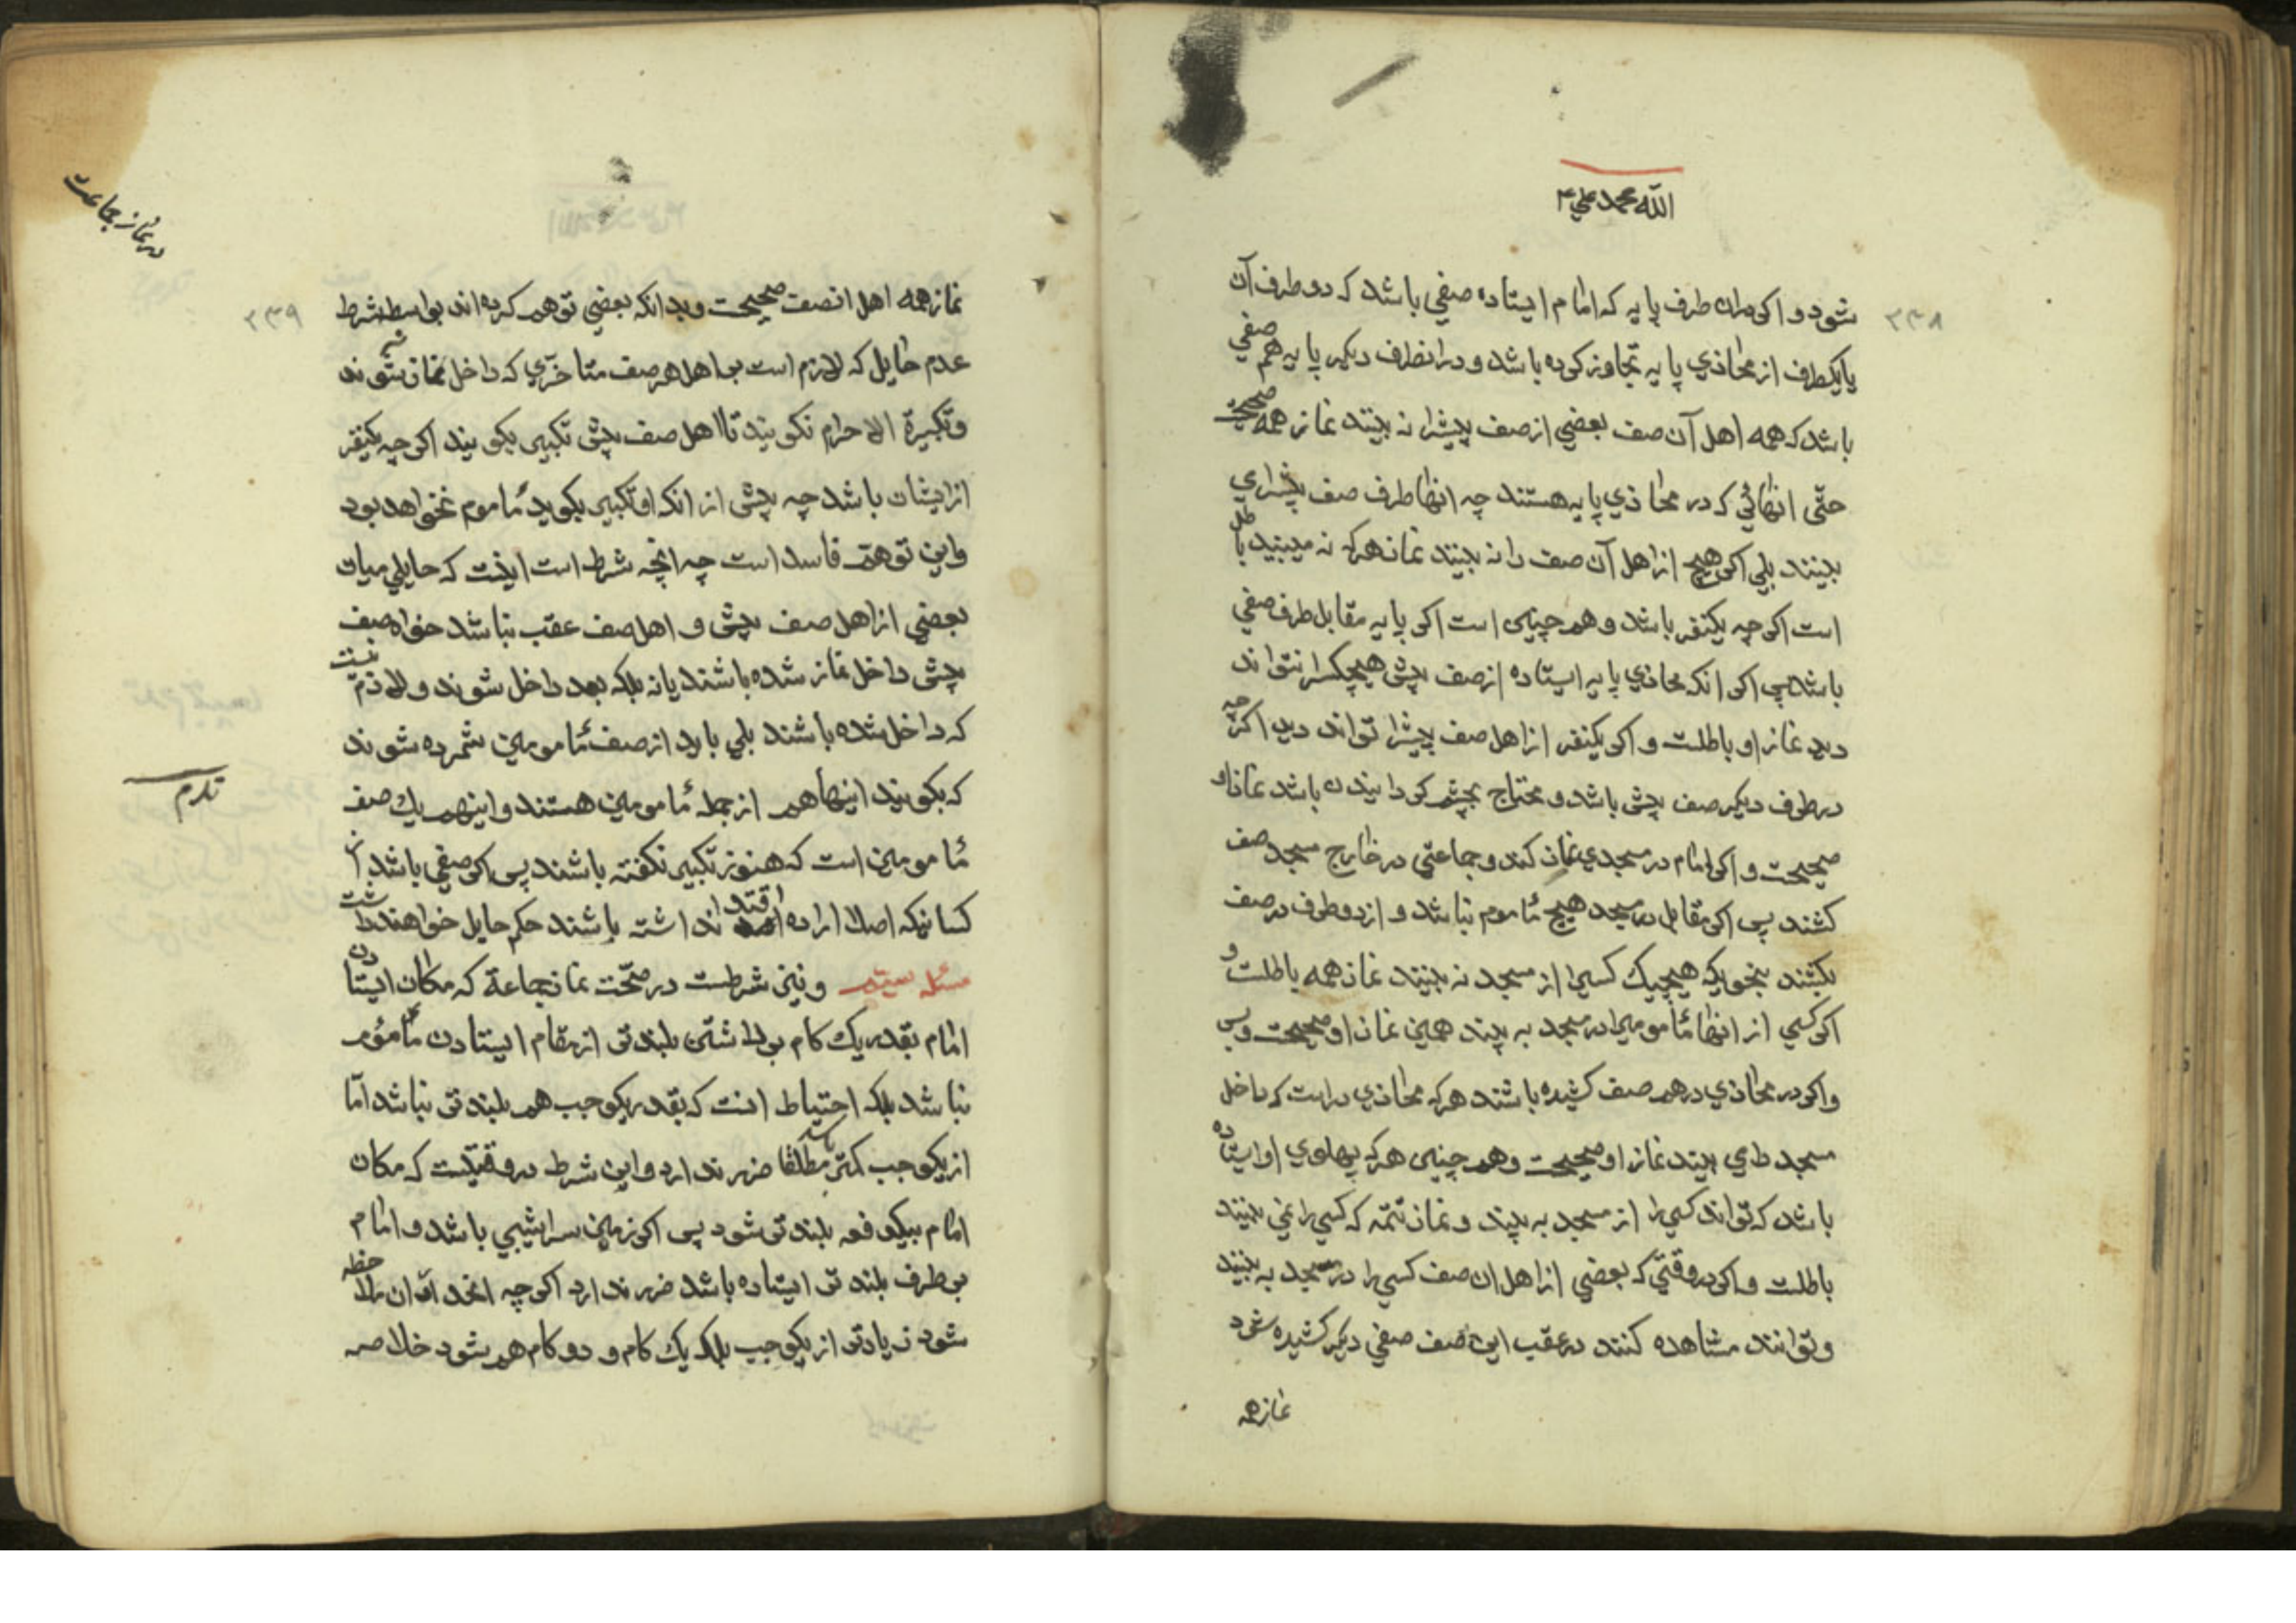 الله محمد علي ۴
۲۳۸
شود و اکر دران طرف پایه که امام ایستاده صفي باشد که دو طرف آن
یا یکطرف از محاذي پایه تجاوز کرده باشد و در انطرف دیکر پایه هم صفي
باشد که همه اهل آن صف بعضي از صف پیشرا نه بینند نماز همه صحیحت
حتّی انهائي که در محاذي پایه هستند چه انها طرف صف پیشرا ي
بینند بلي اکر هیچ از اهل آن صف را نه بینند نماز هرکه نه میبیند باطل
است اکر چه یکنفر باشد و همچنین است اکر پایه مقابل طرف صفي
باشد پس اکر انکه محاذي پایه ایستاده از صف پیش هیچکسرا نتواند
دید نماز او باطلت و اکر یکنفر از اهل صف پیشرا تواند دید اکرچه
در طرف دیکر صف پیش باشد و محتاج بچشم کردانیدن باشد نمازاو
صحیحت و اکر امام در مسجدي نماز کند و جماعتی در خارج مسجد صف
کشند پس اکر مقابل در مسجد هیچ مأموم نباشد و از دو طرف در صف
بکشند بنحویکه هیچیك کسیرا از مسجد نه بینند نماز همه باطلت و
اکر کسي از انها مأمومي را در مسجد به بیند همین نماز او صحیحت و بس
و اکر در محاذي در هم صف کشیده باشند هرکه محاذي در است که داخل
مسجد را مي بیند نماز او صحیحت و همچنین هرکه پهلوي او ایستاده
باشد که تواند کسي را از مسجد به بیند و نماز تتمّه که کسي را نمي بینند
باطلت و اکر در وقتي که بعضي از اهل ان صف کسي را در مسجد به بینند
و توانند مشاهده کنند در عقب این صف صفي دیکر کشیده شود
نماز همه
در نماز جماعت
۲۳۹
نماز همه اهل انصف صحیحت و بدانکه بعضي توهم کرده اند بواسطه شرط
عدم حایل که لازم است بر اهل هر صف متاخّري که داخل نماز نشوند
و تکبیرة الاحرام نکویند تا اهل صف پیش تکبیر بکویند اکر چه یکنفر
از ایشان باشد چه پیش از انکه او تکبیر بکوید مأموم نخواهد بود
و این توهّم فاسد است چه انچه شرط است اینست که حایلي میان
بعضي از اهل صف پیش و اهل صف عقب نباشد خواه صف
پیش داخل نماز شده باشند یا نه بلکه بعد داخل شوند و لازم نیست
که داخل شده باشند بلي باید از صف مأمومین شمرده شوند
که بکویند اینها هم از جمله مأمومین هستند و اینهم یك صف
مأمومین است که هنوز تکبیر نکفته باشند پس اکر صفي باشد از
کسانیکه اصلا اراده اقتدا نداشته باشند حکم حایل خواهند داشت
مسئله سیّم و نیز شرطست در صحّت نماز جماعة که مکان ایستادن
امام بقدر یك کام برداشتن بلندتر از مقام ایستادن مأموم
نباشد بلکه احتیاط انست که بقدر یکوجب هم بلندتر نباشد امّا
از یکوجب کمتر باشد مطلقا ضرر ندارد و این شرط در وقتیکست که مکان
امام بیکدفعه بلندتر شود پس اکر زمین سراشیبي باشد و امام
بر طرف بلندتر ایستاده باشد ضرر ندارد اکر چه انحدار ان ملاحظه
شود زیادتر از یکوجب بلکه یك کام و دو کام هم بشود خلاصه